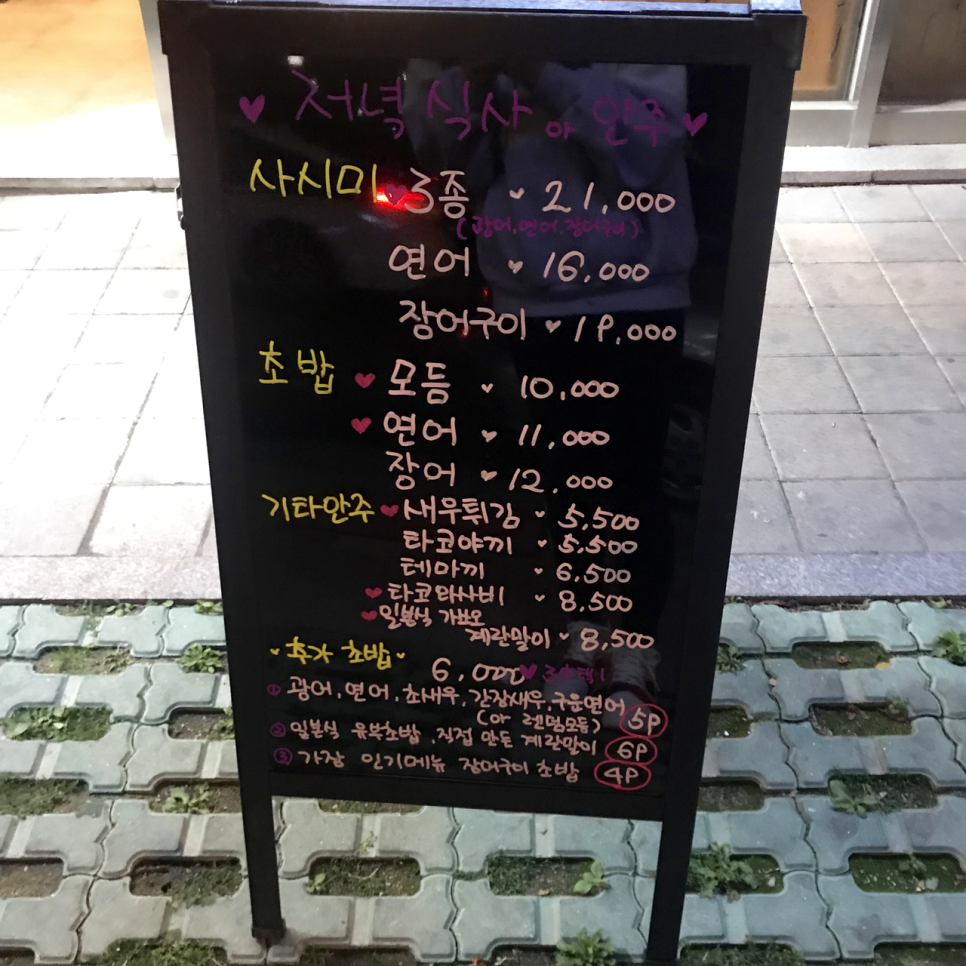 ♥ 저녁 식사 와 안주 ♥
사시미 ♥ 3종 ♥ 21,000
(광어, 연어, 장어구이)
연어 ♥ 16,000
장어구이 ♥ 19,000
초밥 ♥ 모듬 ♥ 10,000
♥ 연어 ♥ 11,000
장어 ♥ 12,000
기타안주 ♥ 새우튀김 ♥ 5,500
타코야끼 ♥ 5,500
테마끼 ♥ 6,500
♥ 타코와사비 ♥ 8,500
♥ 일본식 가쓰오
계란말이 ♥ 8,500
♥ 추가 초밥 ♥ 6,000 ♥ 3초택1
① 광어, 연어, 초새우, 간장새우, 구운연어
(아 렌덤모듬) 5P
② 일본식 유부초밥, 직접 만든 계란말이 6P
③ 가장 인기메뉴 장어구이 초밥 4P